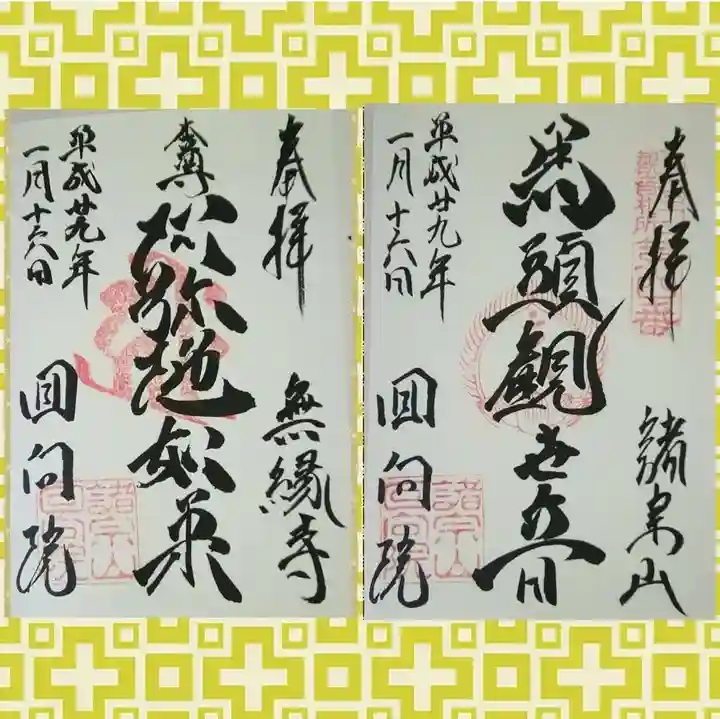 奉拝
諸宗山
馬頭観世音
平成廿九年
一月十六日
回向院
諸宗山
奉拝
無縁寺
本尊
阿弥陀如来
平成廿九年
一月十六日
回向院
諸宗山